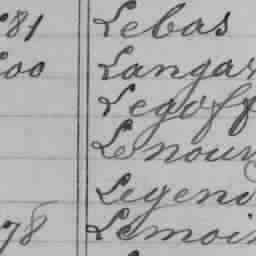 81 Lebas
00 Langar
Legoff
Lenour
Legend
78 Lemoin